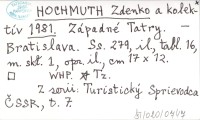 HOCHMUTH Zdenko a kolek-
tív 1981. Západné Tatry. –
Bratislava. Ss. 279, il, tabl. 16,
m. skł. 1, opr. il., cm 17 x 12.
WHP. Tz.
Z serii: Turistický Sprievodca
ČSSR, t. 7.